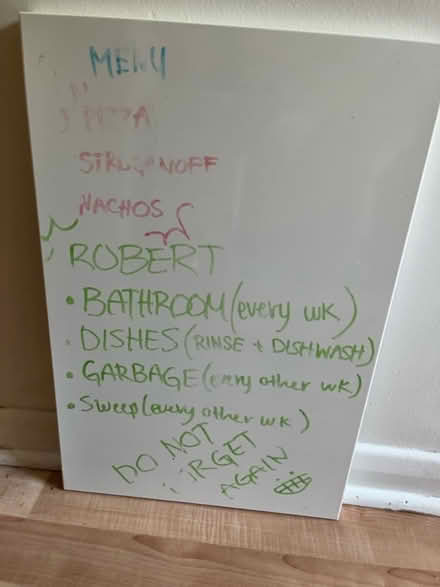 MENU
PIZZA
STROGANOFF
NACHOS
ROBERT
• BATHROOM (every wk)
• DISHES (RINSE + DISHWASH)
• GARBAGE (every other wk)
• Sweep (every other wk)
DO NOT
FORGET
AGAIN